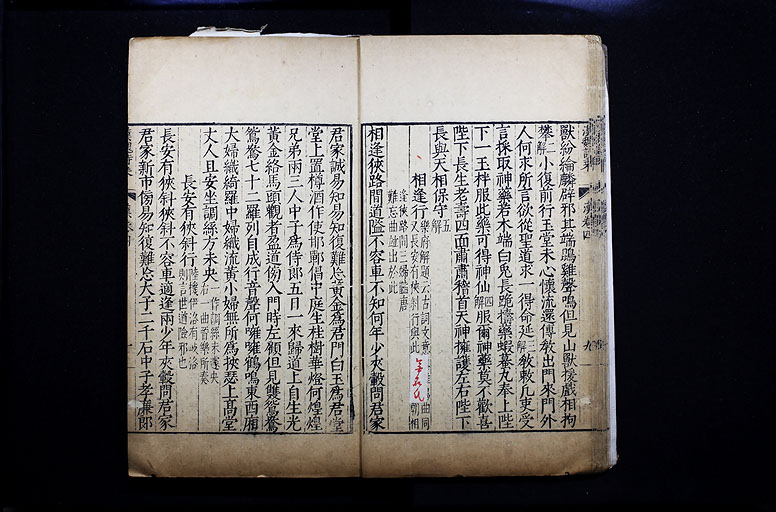 獸紛綸麟辟邪其端鵾雞聲鳴但見山獸援戲相拘
攀二解小復前行玉堂未心懷流還傳教出門來門外
人何求所言欲從聖道求一得命延三解教敕凡吏受
言採取神藥若木端白兔長跪擣藥蝦蟇丸奉上陛
下一玉柈服此藥可得神仙四解服爾神藥莫不歡喜
陛下長生老壽四面肅肅稽首天神擁護左右陛下
長與天相保守五解
相逢行
樂府解題云古詞文意 曲同
又長安有狹斜行與此 相
逢狹路間三婦豔唐
難忘曲並出於此
相逢狹路間道隘不容車不知何年少夾轂問君家
君家誠易知易知復難忘黃金爲君門白玉爲君堂
堂上置樽酒作使邯鄲倡中庭生桂樹華燈何煌煌
兄弟兩三人中子爲侍郎五日一來歸道上自生光
黃金絡馬頭觀者盈道傍入門時左顧但見雙鴛鴦
鴛鴦七十二羅列自成行音聲何噰噰鶴鳴東西廂
大婦織綺羅中婦織流黃小婦無所爲挾瑟上高堂
丈人且安坐調絲方未央
一作調絲未遽央
右一曲晉樂所奏
長安有狹斜行
陸機伊洛有岐路
則言世道險邪也
長安有狹斜狹斜不容車適逢兩少年夾轂問君家
君家新市傍易知復難忘大子二千石中子孝廉郎